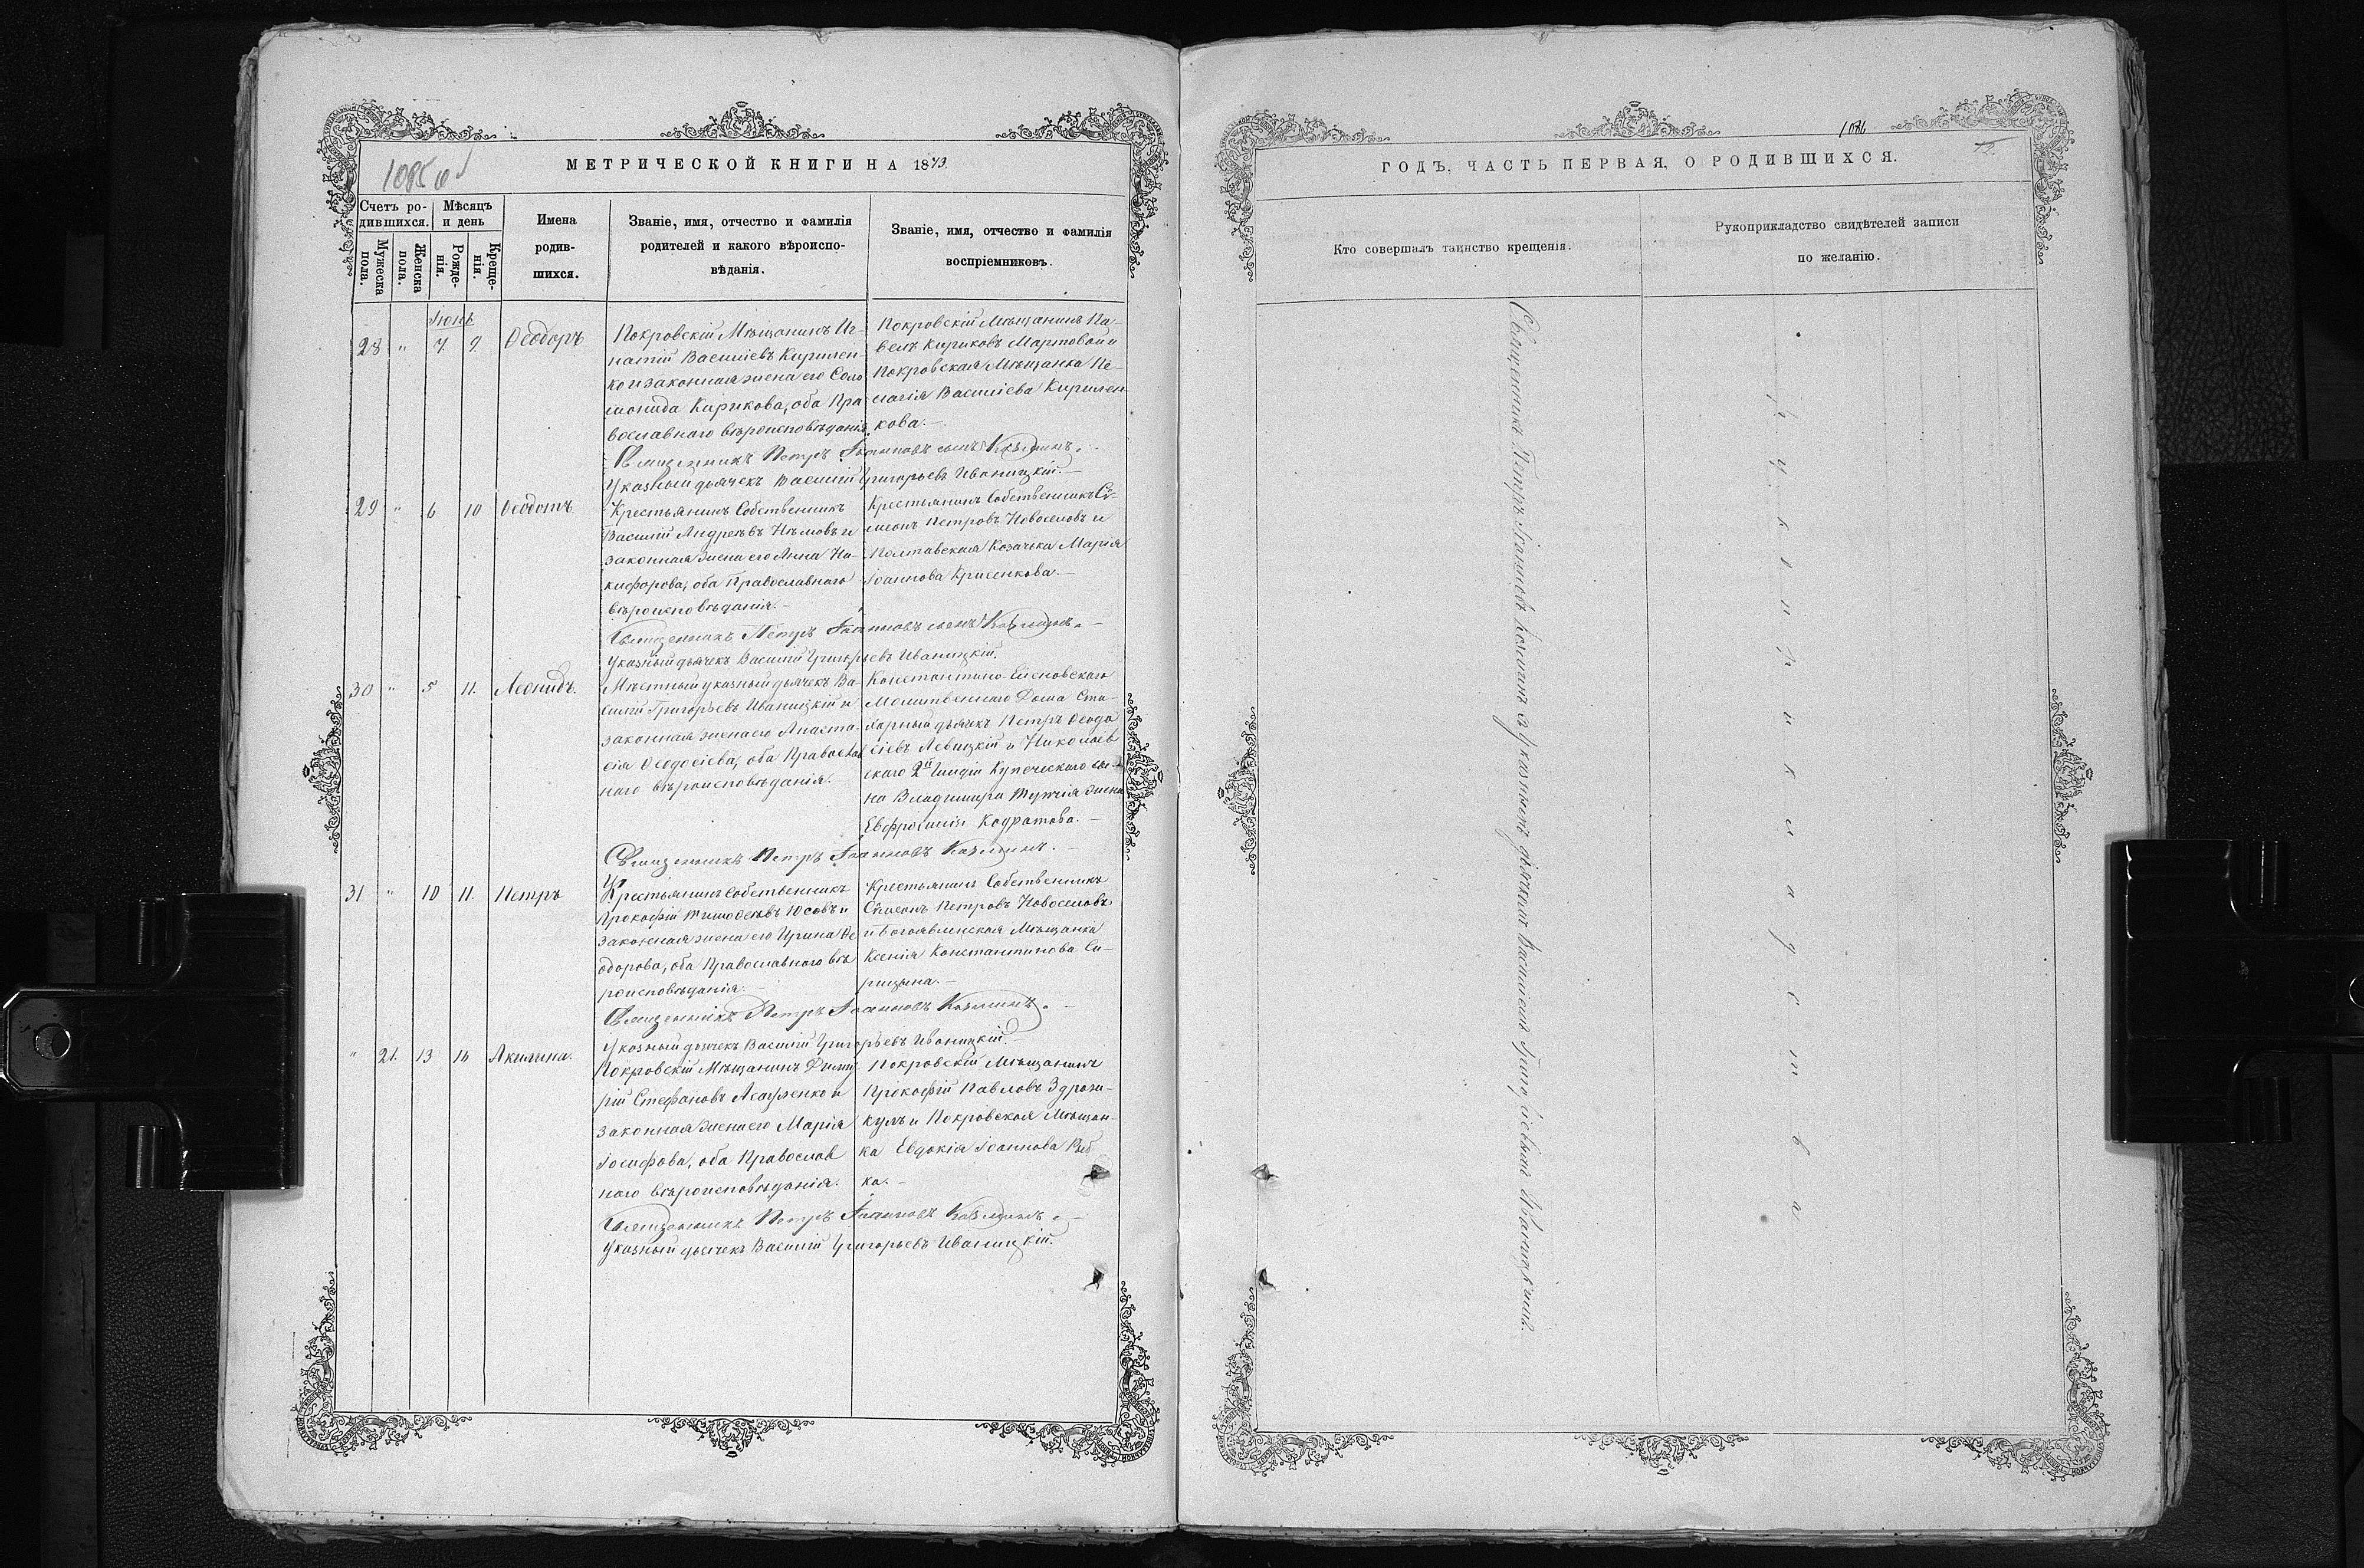 1085 об
МЕТРИЧЕСКОЙ КНИГИ НА 1873
Счетъ ро-
дившихся.
Мѣсяцъ
и день
Мужеска
пола.
Женска
пола.
Рожде-
нія.
Креще-
нія.
Имена
родив-
шихся.
Званіе, имя, отчество и фамилія
родителей и какого вѣроиспо-
вѣданія.
Званіе, имя, отчество и фамилія
воспріемниковъ.
Іюнь
28 " 7. 9. Ѳеодоръ
Покровскій Мѣщанинъ Иг-
натій Василіевъ Кирилен-
ко и законная жена его Соло
монида Кирикова, оба Пра
вославнаго вѣроисповѣданія.
Покровскій Мѣщанинъ Па-
велъ Кириковъ Мартовой и
Покровская Мѣщанка Пе-
лагія Василіева Кирилен
кова.-
Священникъ Петръ Іоанновъ сынъ Козминъ.
Указный дьячекъ Василій Григорьевъ Иваницкій.-
29 " 6 10 Ѳеодотъ
Крестьянинъ Собственникъ
Василій Андреевъ Нѣмовъ и
законная жена его Анна Ни-
кифорова, оба Православнаго
вѣроисповѣданія.-
Крестьянинъ Собственникъ Си-
меонъ Петровъ Новоселовъ и
Полтавская Козачка Марія
Іоаннова Крисенкова.-
Священникъ Петръ Іоанновъ сынъ Козминъ.-
Указный дьячекъ Василій Григорьевъ Иваницкій.
30 " 5 11. Леонидъ.
Мѣстный указный дьячекъ Ва-
силій Григорьевъ Иваницкій и
законная жена его Анаста-
сія Ѳеодосіева, оба Православ
наго вѣроисповѣданія.-
Константино-Еленовскаго
Молитвеннаго Дома Сти-
харный дьячекъ Петръ Ѳеодо
сіевъ Левицкій и Николаев
скаго 2й Гильдіи Купеческаго сы-
на Владимира жена
Евфросинія Кодратова.-
Священникъ Петръ Іоанновъ Козминъ.-
31 " 10 11. Петръ
Крестьянинъ Собственникъ
Прокофій Тимоѳеевъ Юсовъ и
законная жена его Ирина Ѳе
одорова, оба Православнаго вѣ
роисповѣданія.-
Крестьянинъ Собственникъ
Симеонъ Петровъ Новоселовъ
и Богоявленская Мѣщанка
Ксенія Константинова Си-
рицына.-
Священникъ Петръ Іоанновъ Козминъ.-
Указный дьячекъ Василій Григорьевъ Иваницкій.-
" 21. 13 16 Акилина.
Покровскій Мѣщанинъ Димит
рій Стефановъ и
законная жена его Марія
Іосифова, оба Православ
наго вѣроисповѣданія.
Покровскій Мѣщанинъ
Прокофій Павловъ
и Покровская Мѣщан-
ка Евдокія Іоаннова
ка.-
Священникъ Петръ Іоанновъ Козминъ.-
Указный дьячекъ Василій Григорьевъ Иваницкій.
1086
12.
ГОДЪ, ЧАСТЬ ПЕРВАЯ, О РОДИВШИХСЯ.
Кто совершалъ таинство крещенія.
Рукоприкладство свидѣтелей записи
по желанію.
Священникъ Петръ Іоанновъ Козминъ съ Указнымъ дьячкомъ Василіемъ Григорьевымъ Иваницкимъ.
рукоприкладства